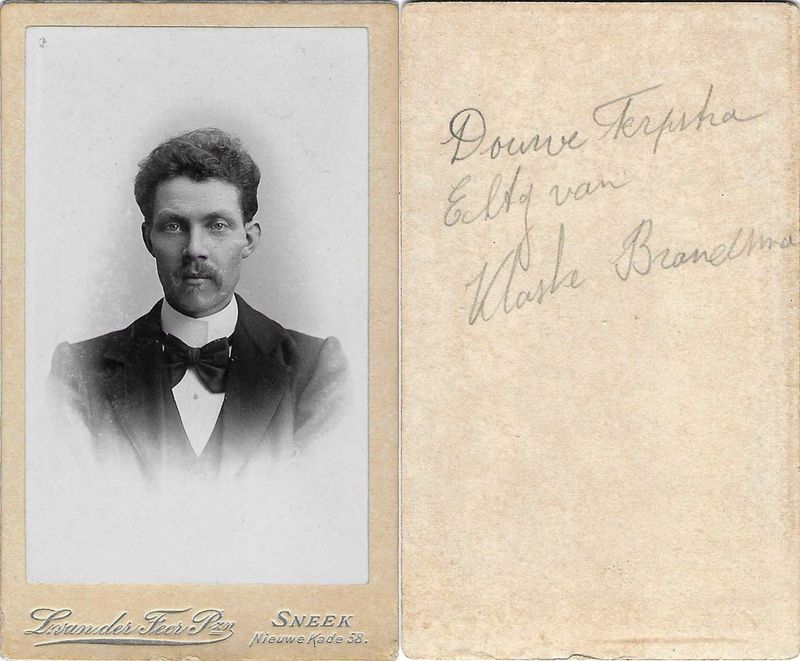 L. van der Feer Pzn
SNEEK
Nieuwe Kade 58.
Douwe Terpstra
Echtg van
Klaske Brandsma